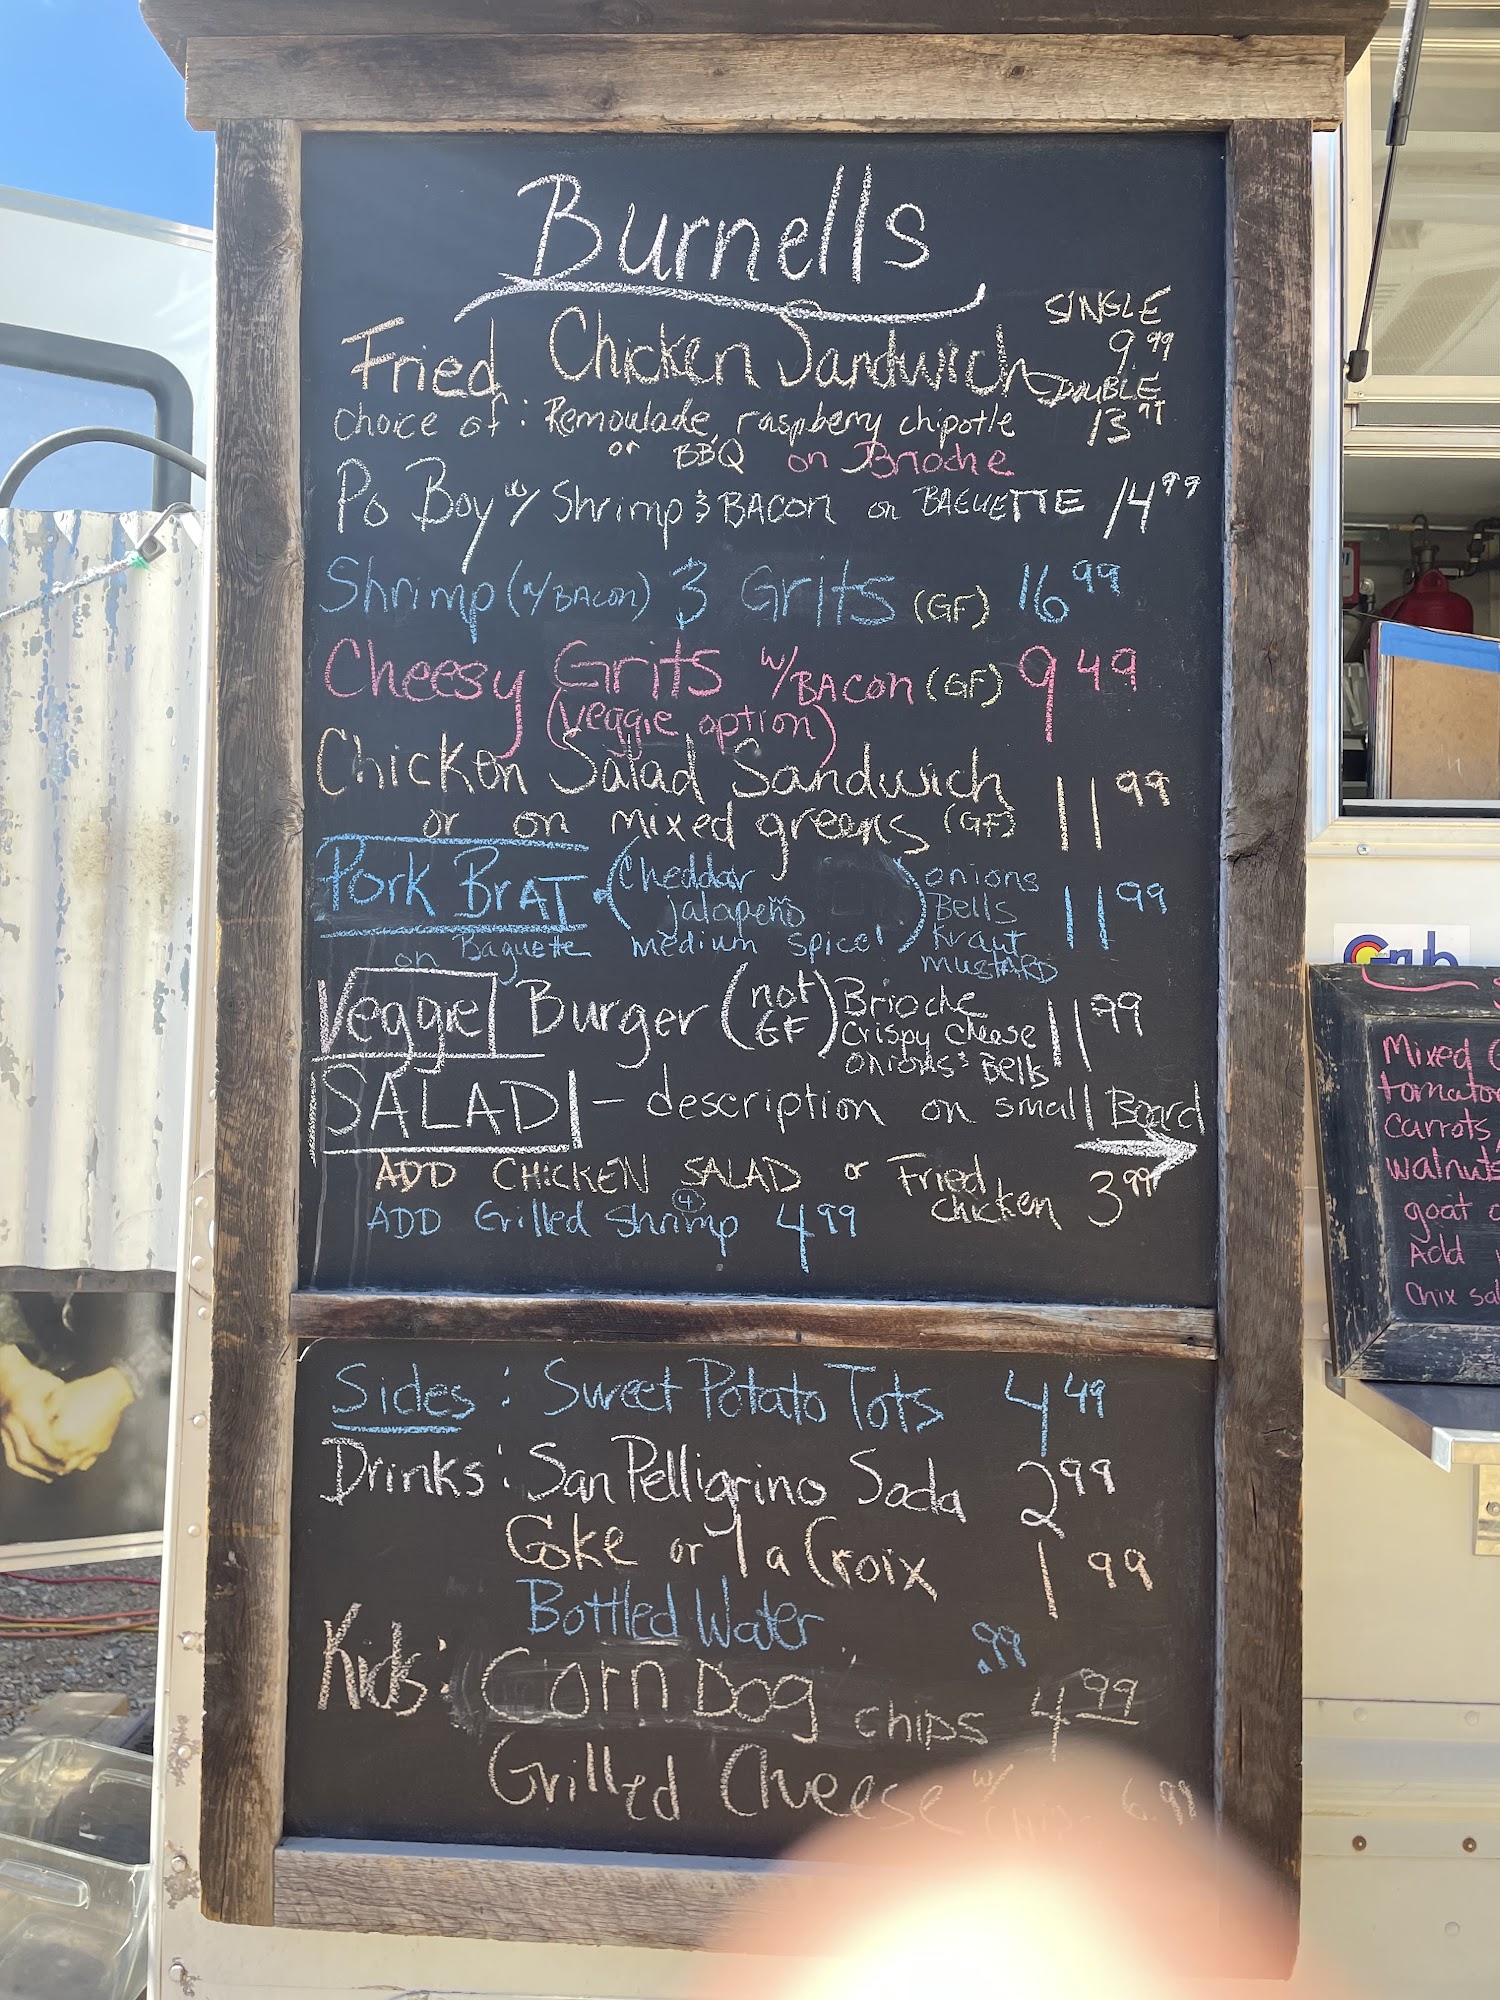 Burnells
Fried Chicken Sandwich
SINGLE
9.99
DOUBLE
13.99
choice of: Remoulade, raspberry chipotle
or BBQ on Brioche
Po Boy w/ Shrimp & BACON on BAGUETTE 14.99
Shrimp (w/BACON) & Grits (GF) 16.99
Cheesy Grits w/BACON (GF) 9.49
(veggie option)
Chicken Salad Sandwich
or on mixed greens (GF) 11.99
Pork BrAT (Cheddar jalapeño)
on Baguette medium spice!
onions
Bells
Kraut
MUSTARD
11.99
Veggie Burger (not GF)
Brioche
Crispy cheese
onions & Bells
11.99
SALAD - description on small Board
ADD CHICKEN SALAD or Fried chicken 3.99
ADD Grilled Shrimp (4) 4.99
Sides: Sweet Potato Tots 4.49
Drinks: San Pelligrino Soda 2.99
Coke or la Croix 1.99
Bottled Water .99
Kids: Corn Dog chips 4.99
Grilled Cheese w/ 6.99
Grub
Mixed
carrots,
walnuts
goat
Add
Chix